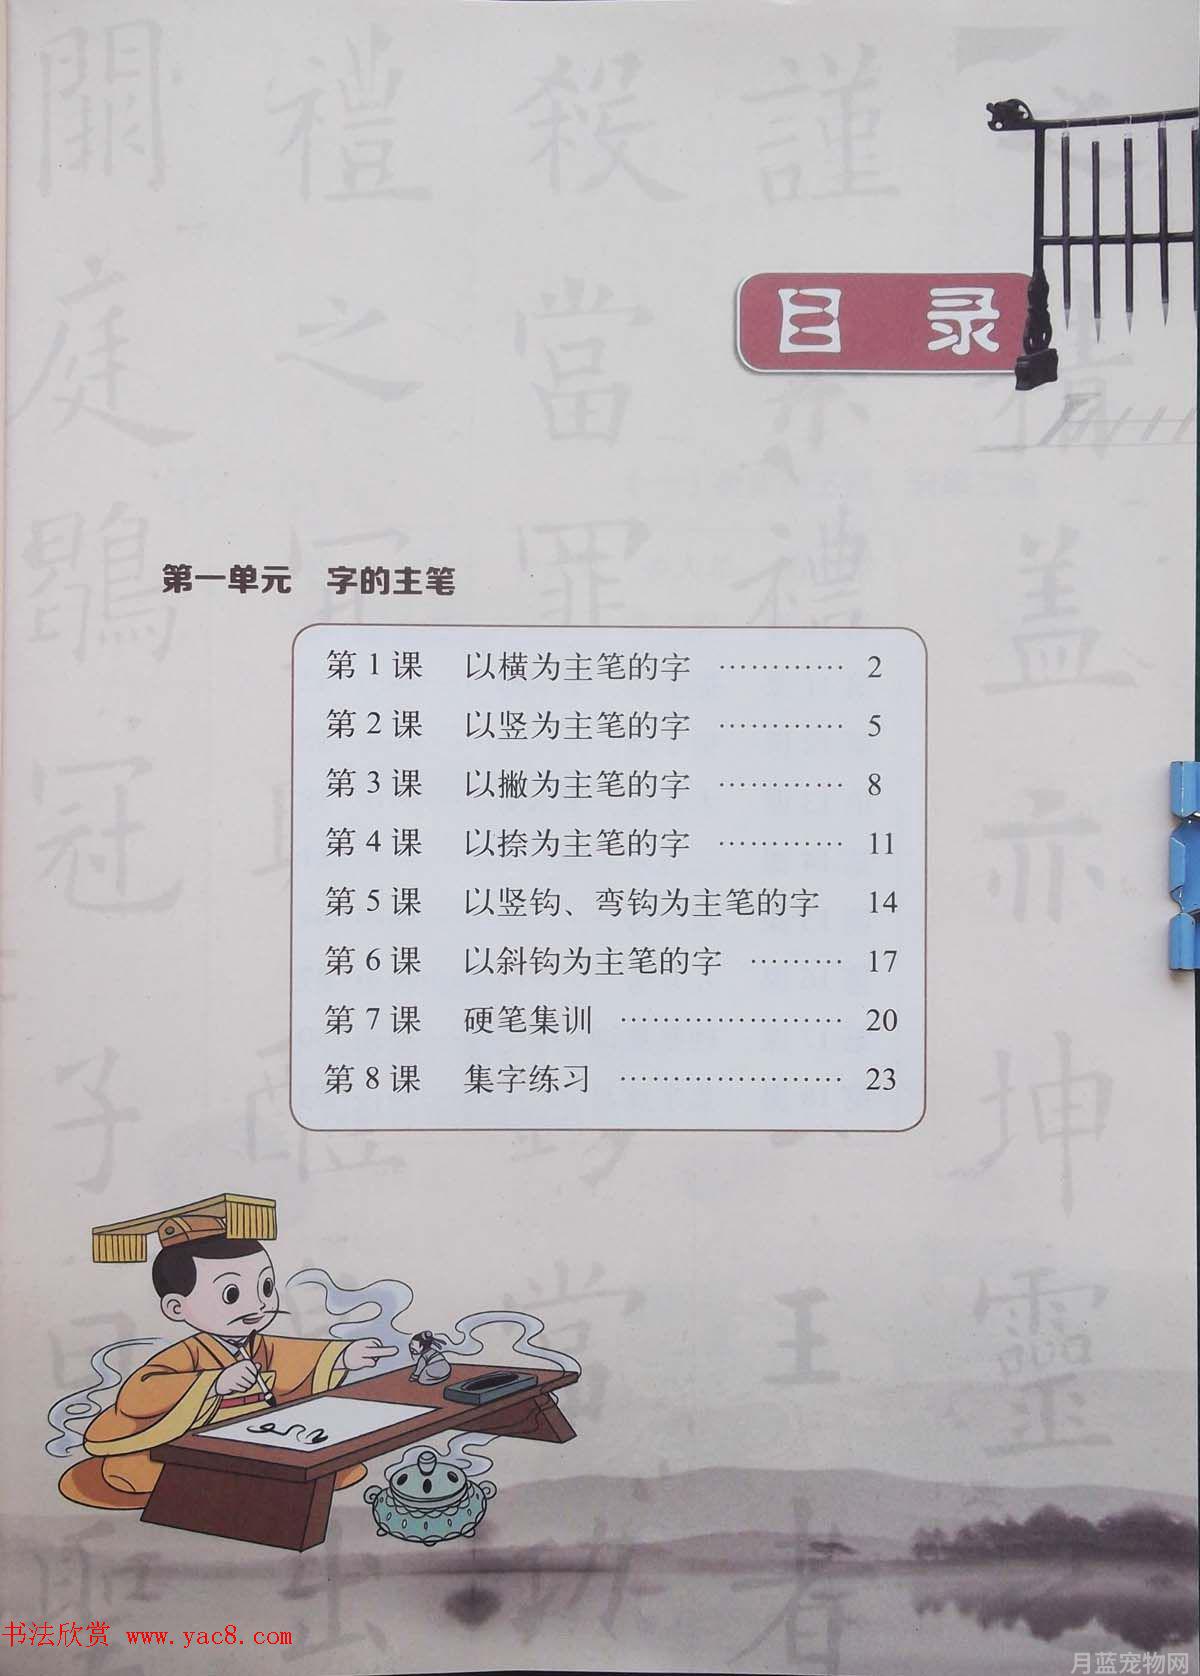 目 录
第一单元 字的主笔
第 1 课 以横为主笔的字 ………… 2
第 2 课 以竖为主笔的字 ………… 5
第 3 课 以撇为主笔的字 ………… 8
第 4 课 以捺为主笔的字 ………… 11
第 5 课 以竖钩、弯钩为主笔的字 14
第 6 课 以斜钩为主笔的字 ……… 17
第 7 课 硬笔集训 ………………… 20
第 8 课 集字练习 ………………… 23
书法欣赏 www.yac8.com
月蓝宠物网